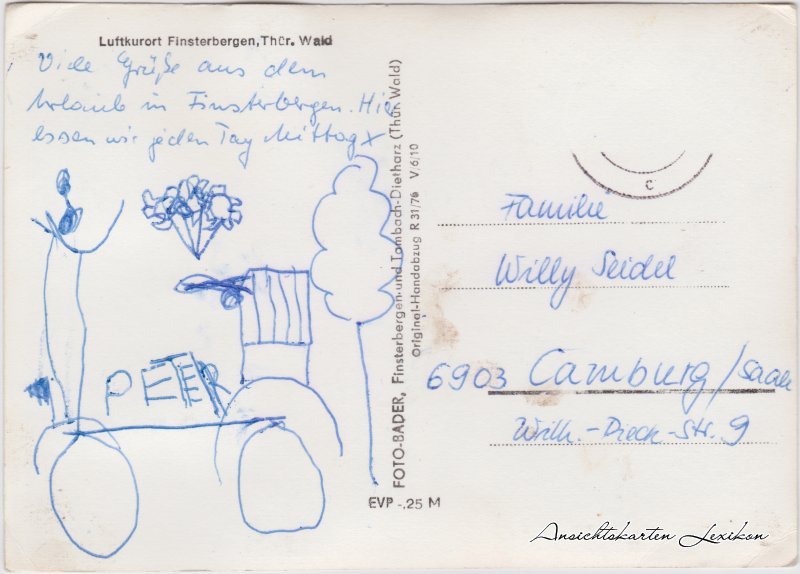 Luftkurort Finsterbergen, Thür. Wald
Viele Grüße aus dem
Urlaub in Finsterbergen. Hier
essen wir jeden Tag Mittag x
PETER
FOTO-BADER, Finsterbergen und Tambach-Dietharz (Thür. Wald)
Original-Handabzug R 31/76 V 6/10
EVP -,25 M
C
Familie
Willy Seidel
6903 Camburg/Saale
Wilh.-Pieck-Str. 9
Ansichtskarten Lexikon